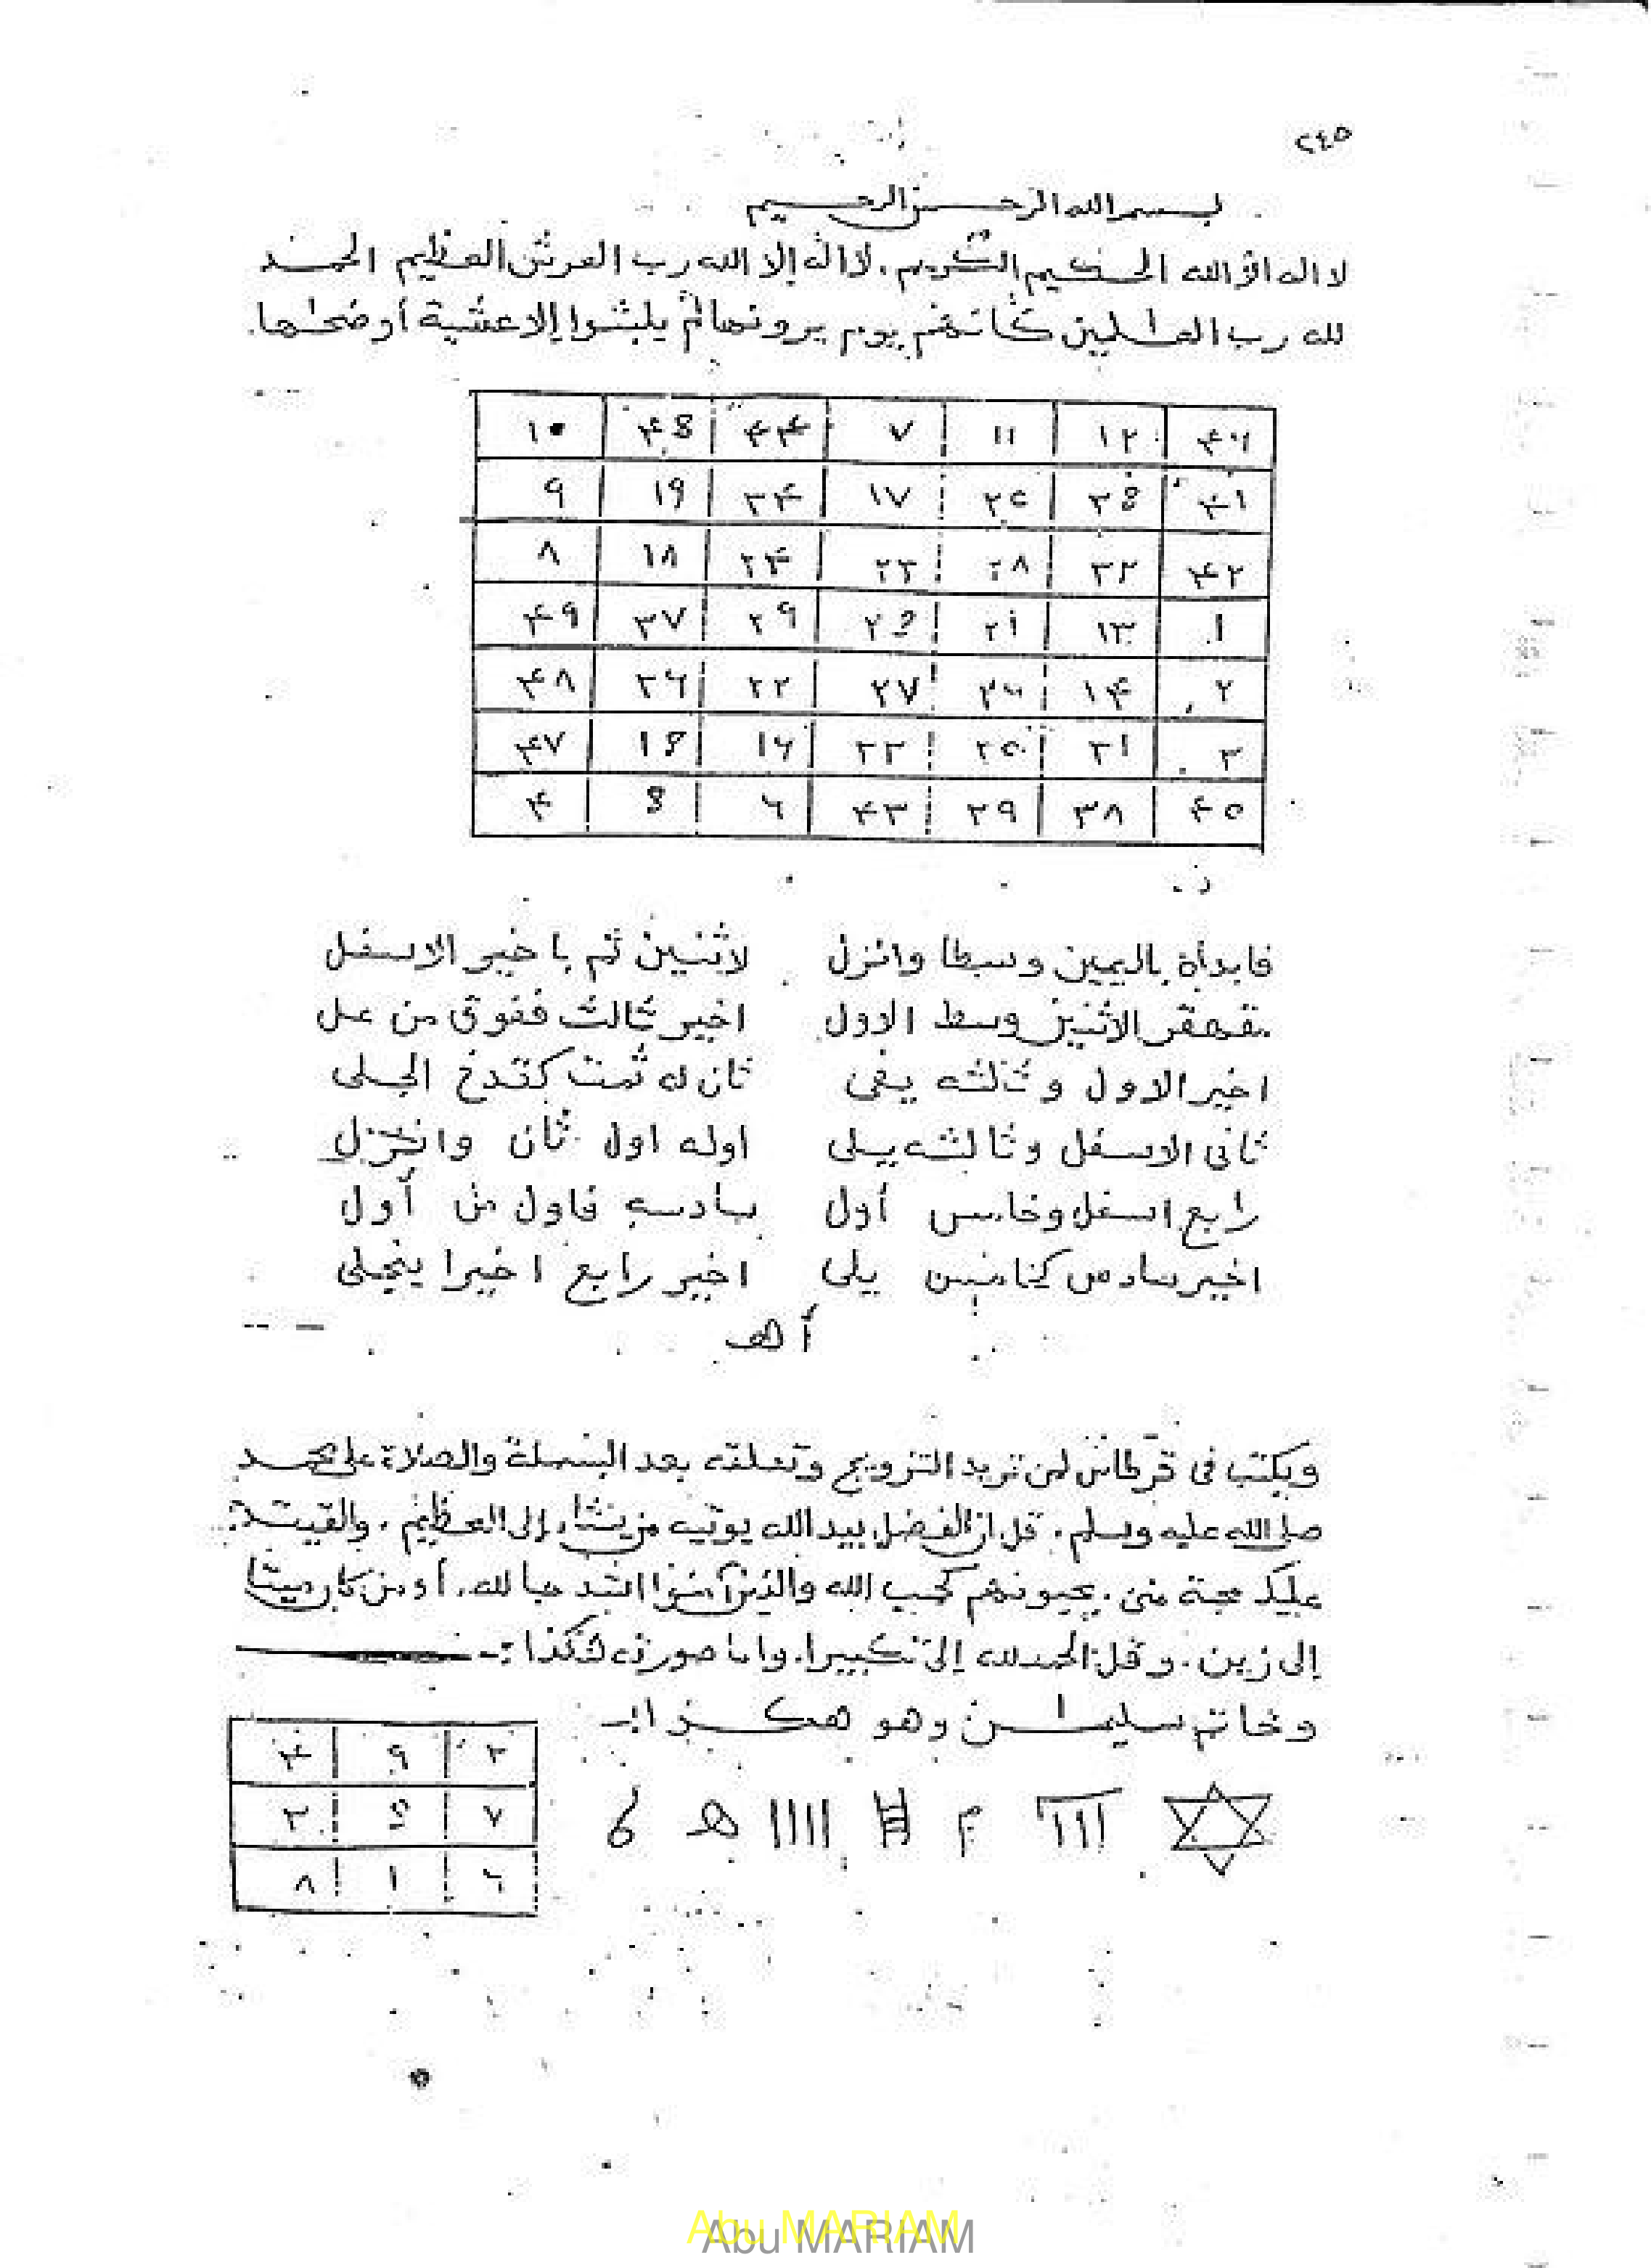 ٢٤٥
بسم الله الرحمن الرحيم
لا اله الا الله الحكيم الكريم . لا اله إلا الله رب العرش العظيم الحمد
لله رب العلمين كأنهم يوم يرونها لم يلبثوا إلا عشية أو ضحها .
٤٦ ١٢ ١١ ٧ ٤٤ ٤٥ ١٠
٤١ ٣٥ ١٧ ٣٤ ١٩ ٩
٤٢ ٣٢ ٢٨ ٢٣ ٢٤ ١٨ ٨
١ ١٣ ٢١ ٢٥ ٢٩ ٣٧ ٤٩
٢ ١٤ ٢٧ ٢٢ ٣٦ ٤٨
٣ ٣١ ٣٣ ١٦ ١٥ ٤٧
٤٠ ٣٨ ٣٩ ٤٣ ٦ ٥ ٤
فابدأه باليمين وسطا وانزل لاثنين ثم با خير الاسفل
تقهقر الاثنين وسط الاول اخير ثالث ففوق من عل
اخير الاول وثالثه يفى ثان له ثمت الجلى
ثانى الاسفل وثالثه يلى اوله اول ثان وانخزل
رابع اسفل وخامس أول سادسه فاول من أول
اخير سادس كخامس يلى اخير رابع اخيرا ينجلى
أ هـ
ويكتب فى قرطاس لمن تريد التزويج وتعلقه بعد البسملة والصلاة على محمد
صلى الله عليه وسلم . قل إن الفضل بيد الله يوتيه من يشاء إلى العظيم . والقيت
عليك محبة منى . يحبونهم كحب الله والذين آمنوا اشد حبا لله . أو من كان ميتا
إلى زين . وقل الحمد لله إلى تكبيرا . واما صورته فكذا :-
وخاتم سليمن وهو هكذا :-
٢ ٩ ٤
٧ ٥ ٣
٦ ١ ٨
Abu MARIAM
Abu MARIAM